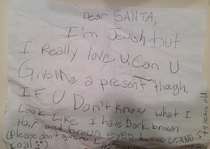 Dear SANTA,
I'm Jewish but
I Really love U. Can U
Give me a present though.
IF U Don't know what I
Look like I have Dark brown
Hair and brown eyes. I Love U. AND S
(Please don't